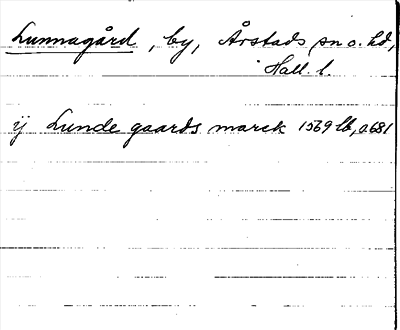 Lunnagård, by, Årstads sn o. hd,
Hall. l.
ij Lunde gaards marck 1569 lb, 0681